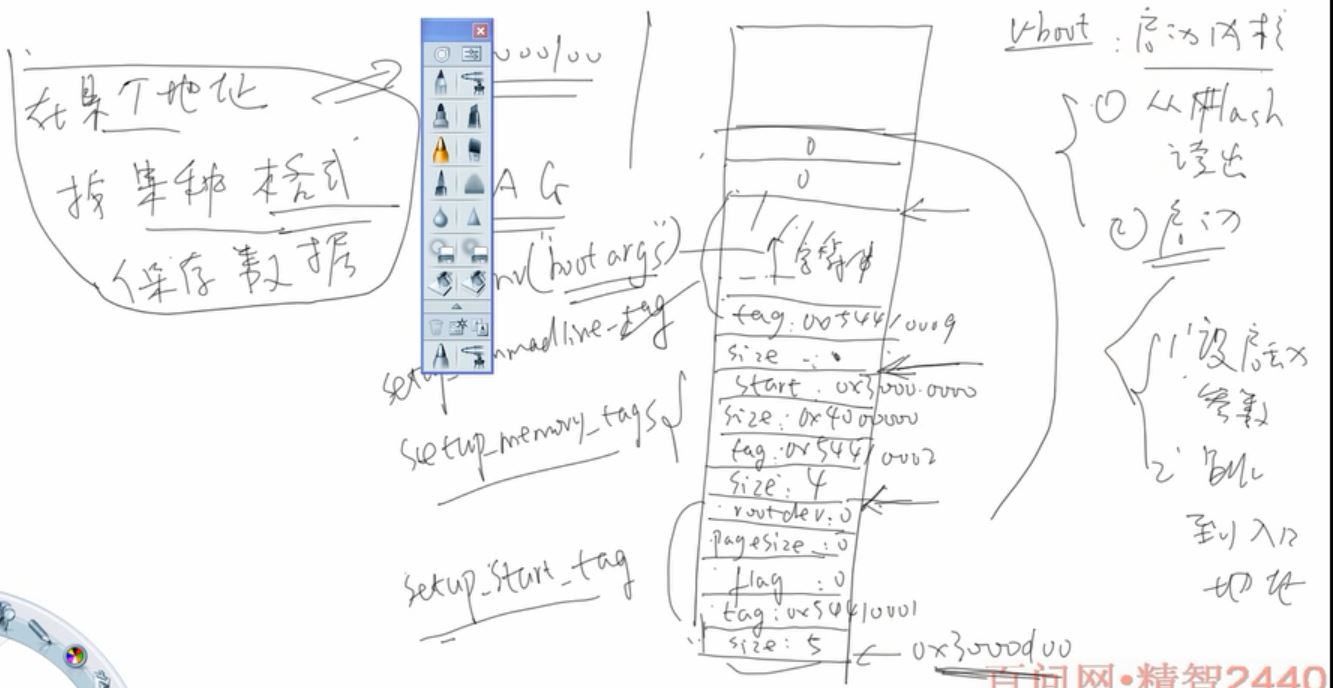 在某个地址
按某种格式
保存数据
000100
AG
nv("bootargs")
mmadline-tag
setup_
setup_memory_tags
setup_start_tag
0
0
字符串
tag:0x54410009
size :
start : 0x3000.0000
size:0x4000000
tag:0x54410002
size: 4
rootdev:0
pagesize :0
flag :0
tag:0x54410001
size: 5
0x3000d00
u-boot : 启动内核
① 从Flash
读出
② 启动
1' 设启动
参数
2'
到入口
地址
百问网•精智2440